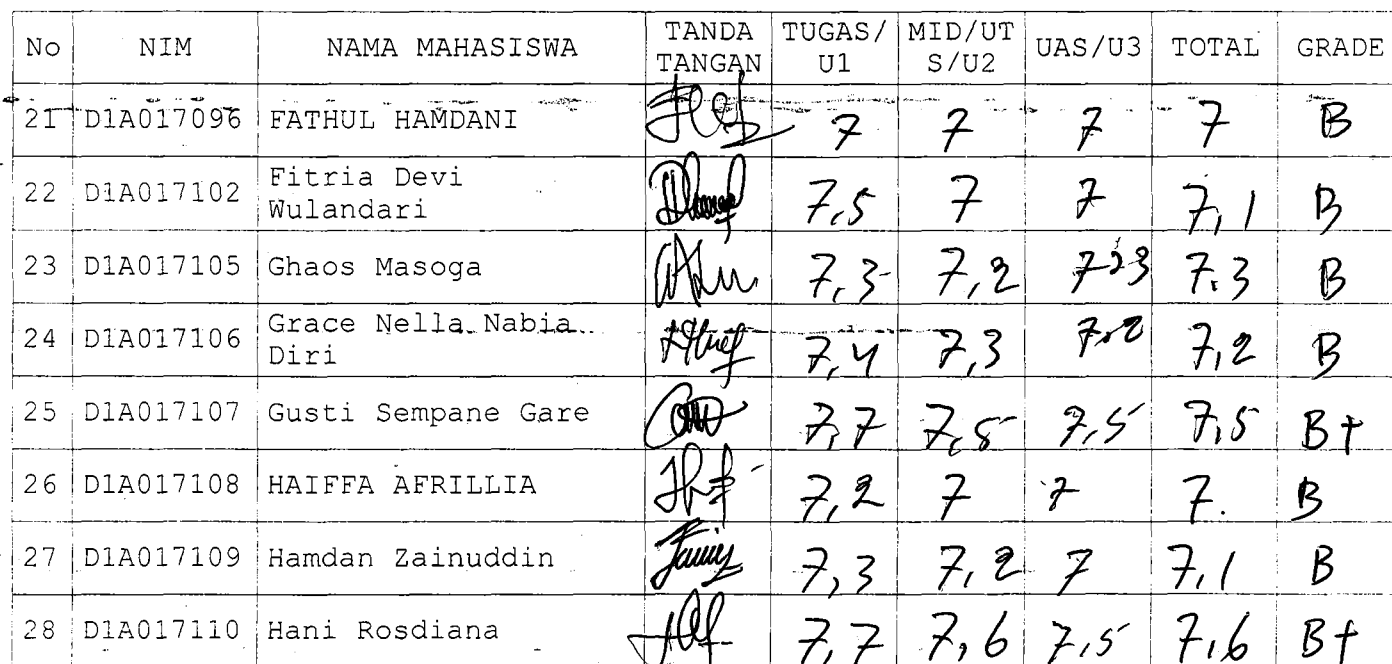 No NIM NAMA MAHASISWA TANDA TANGAN TUGAS/ U1 MID/UT S/U2 UAS/U3 TOTAL GRADE
21 D1A017096 FATHUL HAMDANI 7 7 7 7 B
22 D1A017102 Fitria Devi Wulandari 7,5 7 7 7,1 B
23 D1A017105 Ghaos Masoga 7,3 7,2 7,3 B
24 D1A017106 Grace Nella Nabia Diri 7,4 7,3 7,2 7,2 B
25 D1A017107 Gusti Sempane Gare 7,7 7,5 7,5 7,5 B+
26 D1A017108 HAIFFA AFRILLIA 7,2 7 7 7. B
27 D1A017109 Hamdan Zainuddin 7,3 7,2 7 7,1 B
28 D1A017110 Hani Rosdiana 7,7 7,6 7,5 7,6 B+